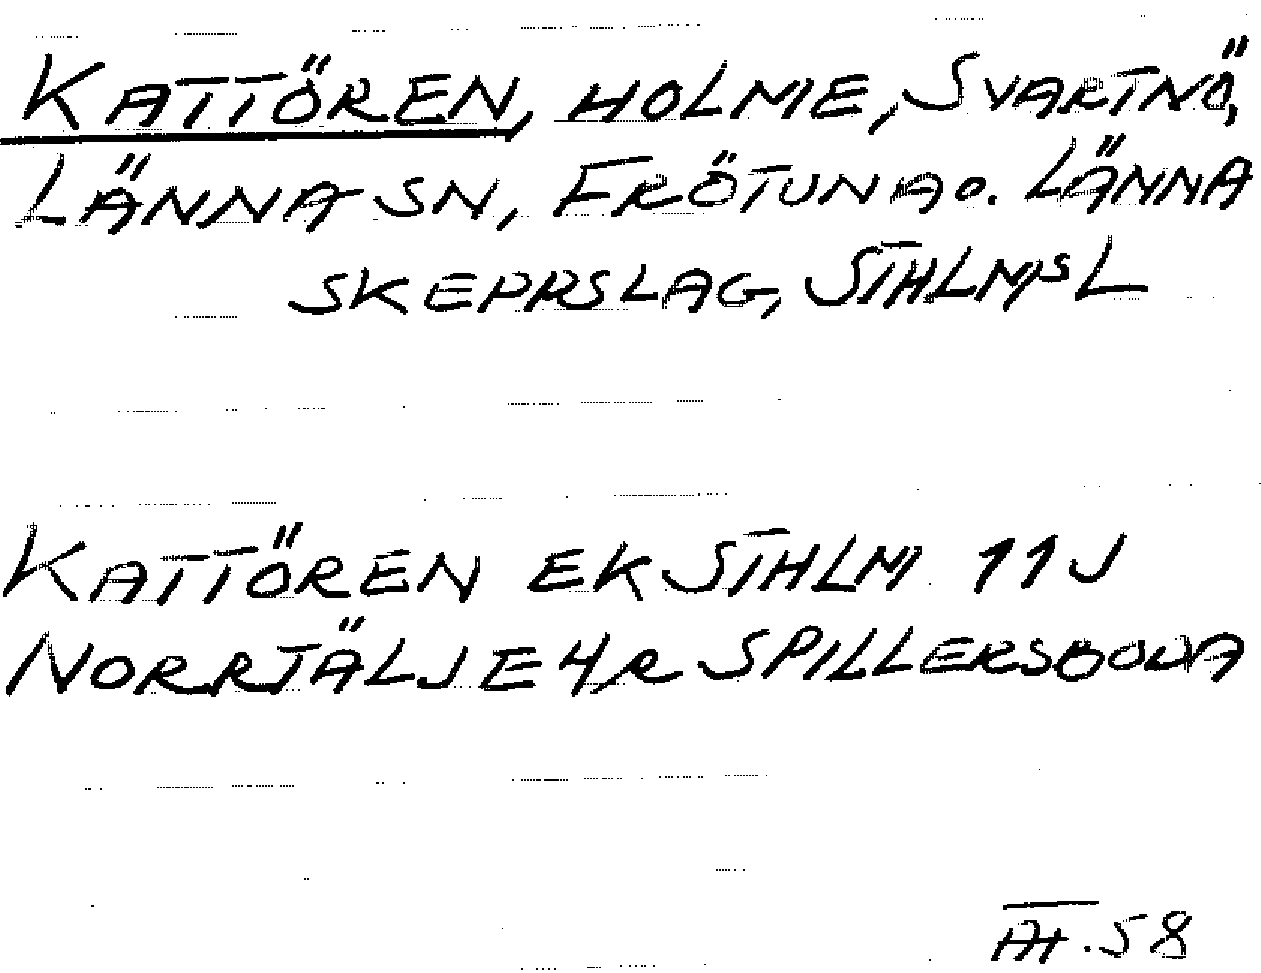 KATTÖREN, HOLME, SVARTNÖ,
LÄNNA SN, FRÖTUNA O. LÄNNA
SKEPPSLAG, STHLMS L
KATTÖREN EK STHLM 11J
NORRTÄLJE 4R SPILLERSBODA
AT. 58